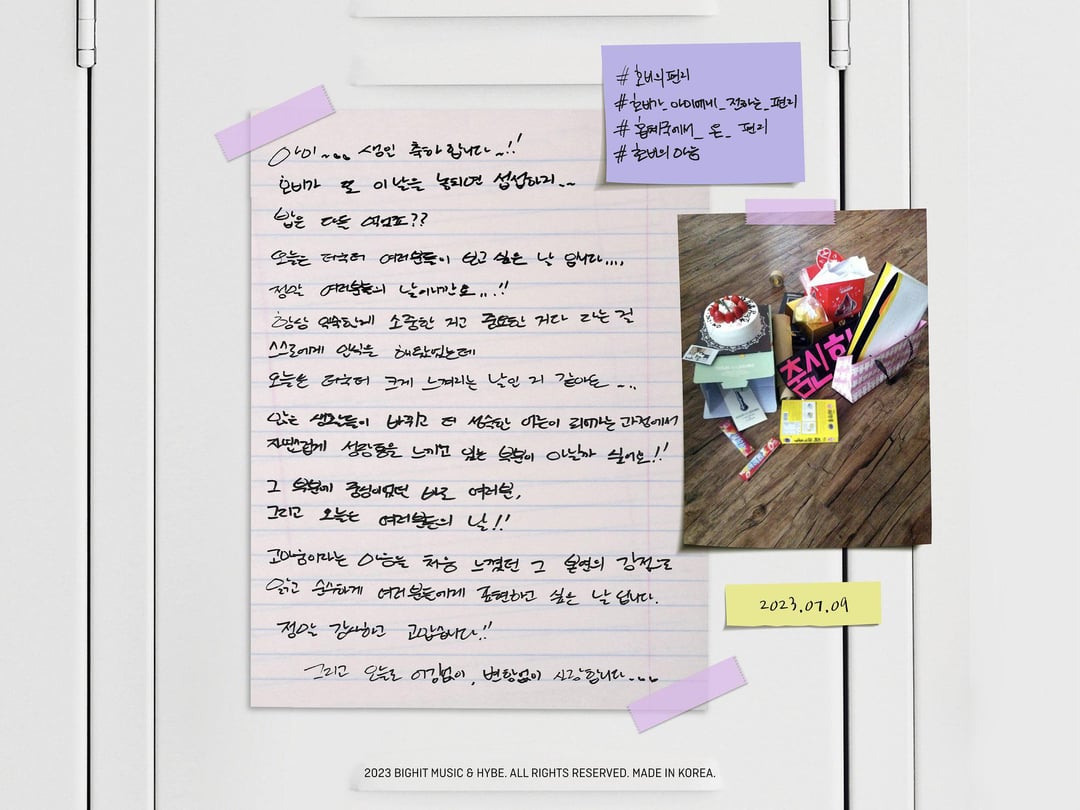 아미~... 생일 축하합니다~!!
호비가 또 이날을 놓치면 섭섭하지..~
밥은 다들 먹었죠??
오늘은 더욱더 여러분들이 보고 싶은 날 입니다....
정말 여러분들의 날이니깐요...!!
항상 익숙한게 소중한 지고 중요한 거다 라는 걸
스스로에게 인식을 해왔었는데
오늘은 더욱더 크게 느껴지는 날인 거 같아요 ...
많은 생각들이 바뀌고 더 성숙한 어른이 되어가는 과정에서
자연스럽게 성장통을 느끼고 있는 부분이 아닐까 싶어요!!
그 부분에 중심이었던 바로 여러분,
그리고 오늘은 여러분들의 날!!
고마움이라는 마음을 처음 느꼈던 그 본연의 감정으로
맑고 순수하게 여러분들에게 표현하고 싶은 날 입니다.
정말 감사하고 고맙습니다!!
그리고 오늘도 어김없이, 변함없이 사랑합니다....
#호비의편지
#호비가_아미에게_전하는_편지
#홉베국에서_온_편지
#호비의마음
홉신함
2023.07.09
2023 BIGHIT MUSIC & HYBE. ALL RIGHTS RESERVED. MADE IN KOREA.